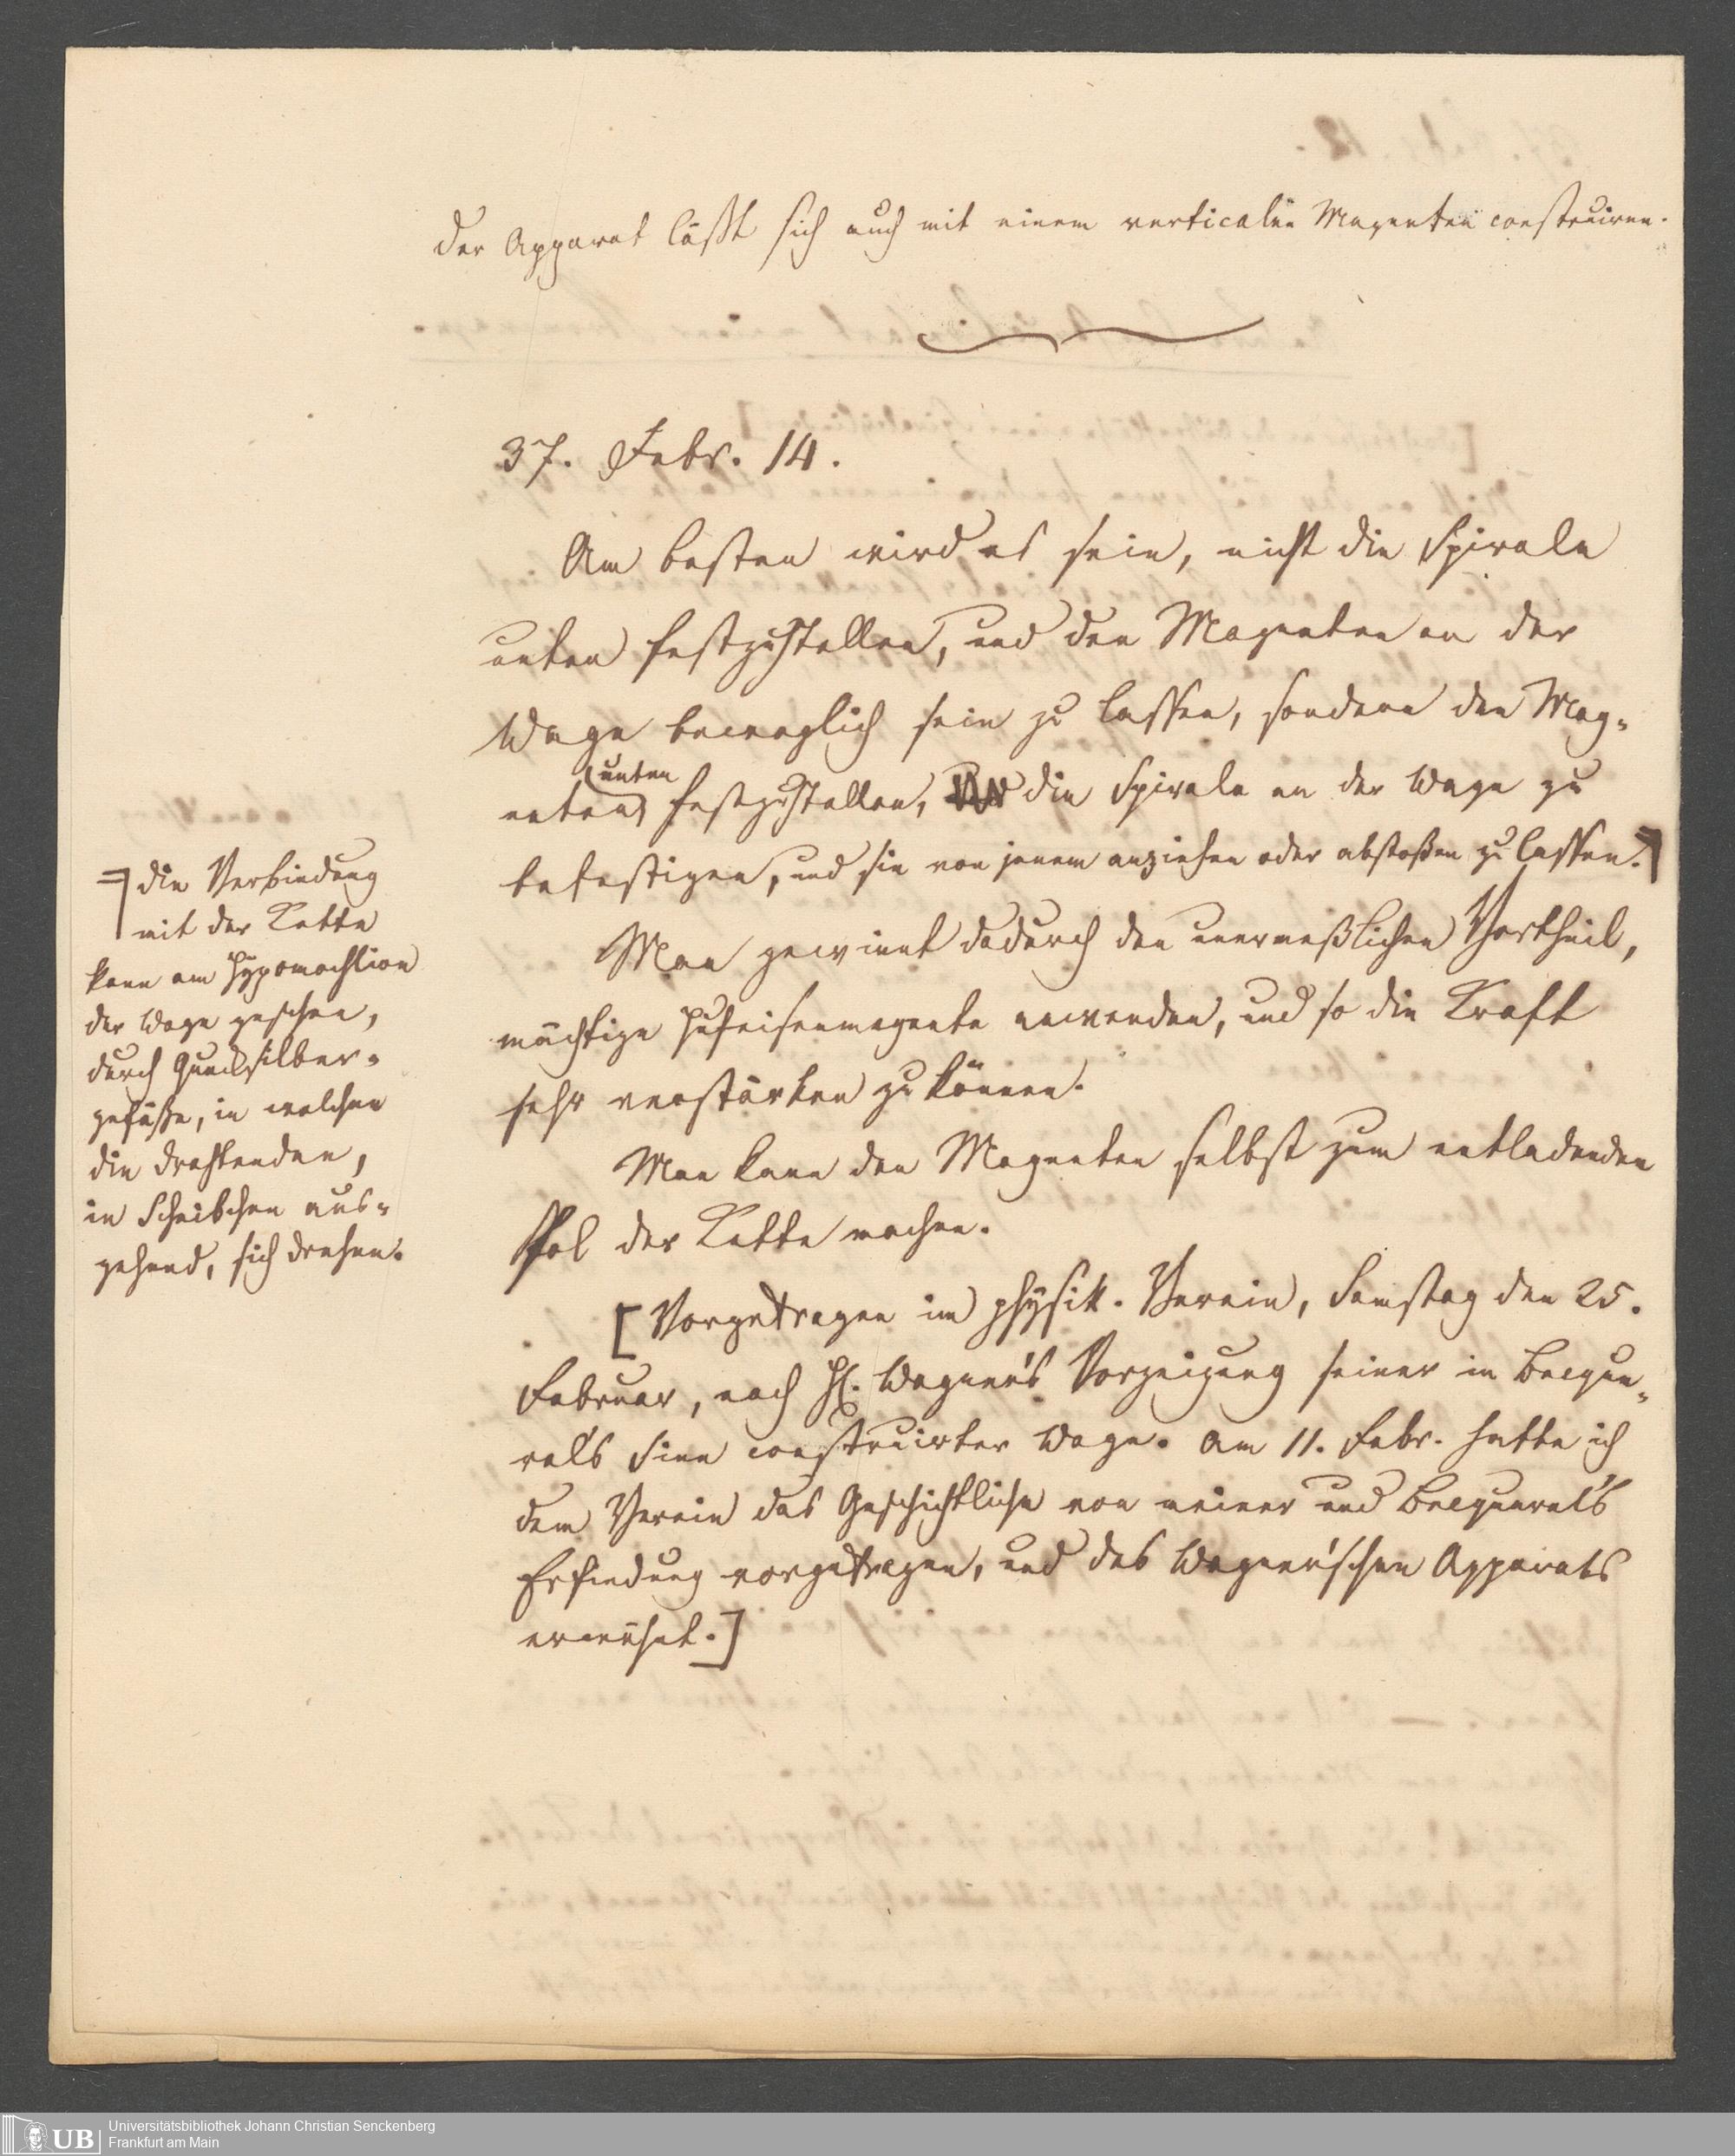 Der Apparat läßt sich auch mit einem verticalen Magneten construiren.
37. Febr. 14.
Am besten wird es sein, nicht die Spirale
unten festzustellen, und den Magneten an der
Wage beweglich sein zu lassen, sondern den Mag-
neten unten festzustellen, die Spirale an der Wage zu
befestigen, und sie von jenem anziehen oder abstoßen zu lassen.
Man gewinnt dadurch den unermeßlichen Vortheil,
mächtige Hufeisenmagnete anwenden, und so die Kraft
sehr verstärken zu können.
Man kann den Magneten selbst zum entladenden
Pol der Kette machen.
[Vorgetragen im physik. Verein, Samstag den 25.
Februar, nach H. Wagner's Vorzeigung seiner in Becque-
rel's Sinn construirter Wage. Am 11. Febr. hatte ich
dem Verein das Geschichtliche von meiner und Becquerel's
Erfindung vorgetragen, und des Wagner'schen Apparats
erwähnt.]
die Verbindung
mit der Kette
kann am Hypomochlion
der Wage geschehen,
durch Quecksilber-
gefäße, in welchen
die Drahtenden,
in Scheibchen aus-
gehend, sich drehen.
Universitätsbibliothek Johann Christian Senckenberg
Frankfurt am Main
UB